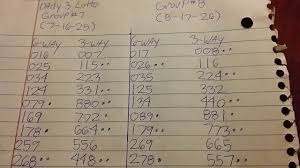 Daily 3 Lotto Group #8
Group #7 (8-17-26)
(7-16-25)
6-WAY 3-WAY 6-WAY 3-WAY
016 007 017 008••
025 115•• 026•• 116
034 223 035 224••
124 331 125 332
079• 880•• 134 440••
169 772 089• 881
178• 664 179• 773••
259 556 269 665
268•• 448•• 278• 557••